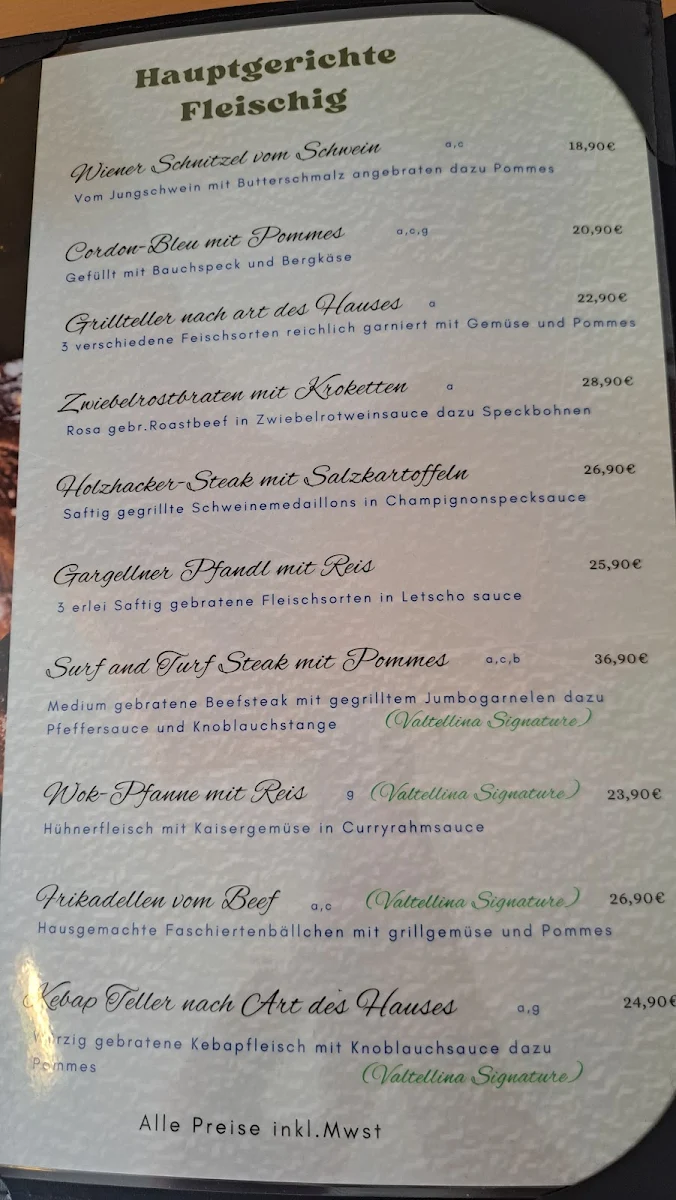 Hauptgerichte
Fleischig
Wiener Schnitzel vom Schwein a,c 18,90€
Vom Jungschwein mit Butterschmalz angebraten dazu Pommes
Cordon-Bleu mit Pommes a,c,g 20,90€
Gefüllt mit Bauchspeck und Bergkäse
Grillteller nach art des Hauses a 22,90€
3 verschiedene Feischsorten reichlich garniert mit Gemüse und Pommes
Zwiebelrostbraten mit Kroketten a 28,90€
Rosa gebr.Roastbeef in Zwiebelrotweinsauce dazu Speckbohnen
Holzhacker-Steak mit Salzkartoffeln 26,90€
Saftig gegrillte Schweinemedaillons in Champignonspecksauce
Gargellner Pfandl mit Reis 25,90€
3 erlei Saftig gebratene Fleischsorten in Letscho sauce
Surf and Turf Steak mit Pommes a,c,b 36,90€
Medium gebratene Beefsteak mit gegrilltem Jumbogarnelen dazu
Pfeffersauce und Knoblauchstange (Valtellina Signature)
Wok-Pfanne mit Reis g (Valtellina Signature) 23,90€
Hühnerfleisch mit Kaisergemüse in Curryrahmsauce
Frikadellen vom Beef a,c (Valtellina Signature) 26,90€
Hausgemachte Faschiertenbällchen mit grillgemüse und Pommes
Kebap Teller nach Art des Hauses a,g 24,90€
Würzig gebratene Kebapfleisch mit Knoblauchsauce dazu
Pommes (Valtellina Signature)
Alle Preise inkl.Mwst